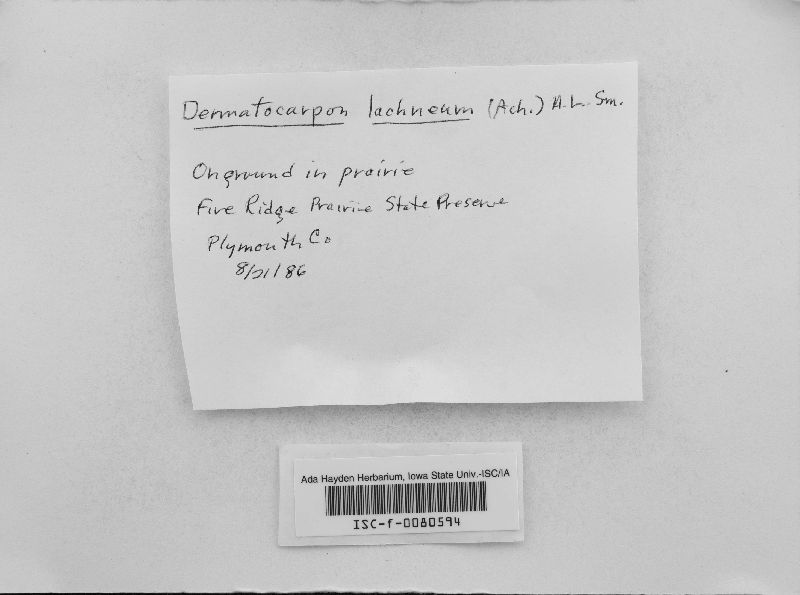 Dermatocarpon lachneum (Ach.) A.L. Sm.
On ground in prairie
Five Ridge Prairie State Preserve
Plymouth Co
8/21/86
Ada Hayden Herbarium, Iowa State Univ.-ISC/IA
ISC-f-0080594